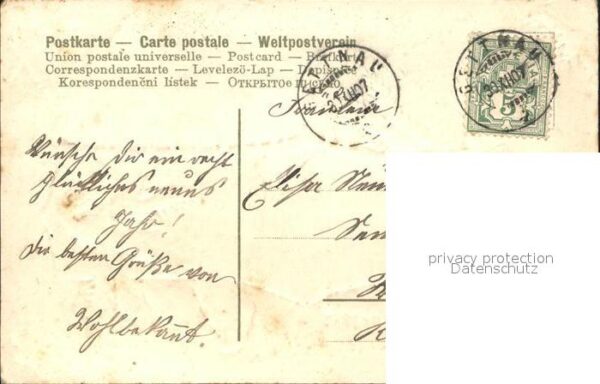 Postkarte — Carte postale — Weltpostverein
Union postale universelle — Postcard — Briefkarte
Correspondenzkarte — Levelező-Lap — Dopisnice
Korespondenční lístek — Открытое письмо
Fräulein
Wünsche Dir ein recht
glückliches neues
Jahr!
Die besten Grüße von
Wohlbekannt.
Elisa
privacy protection
Datenschutz